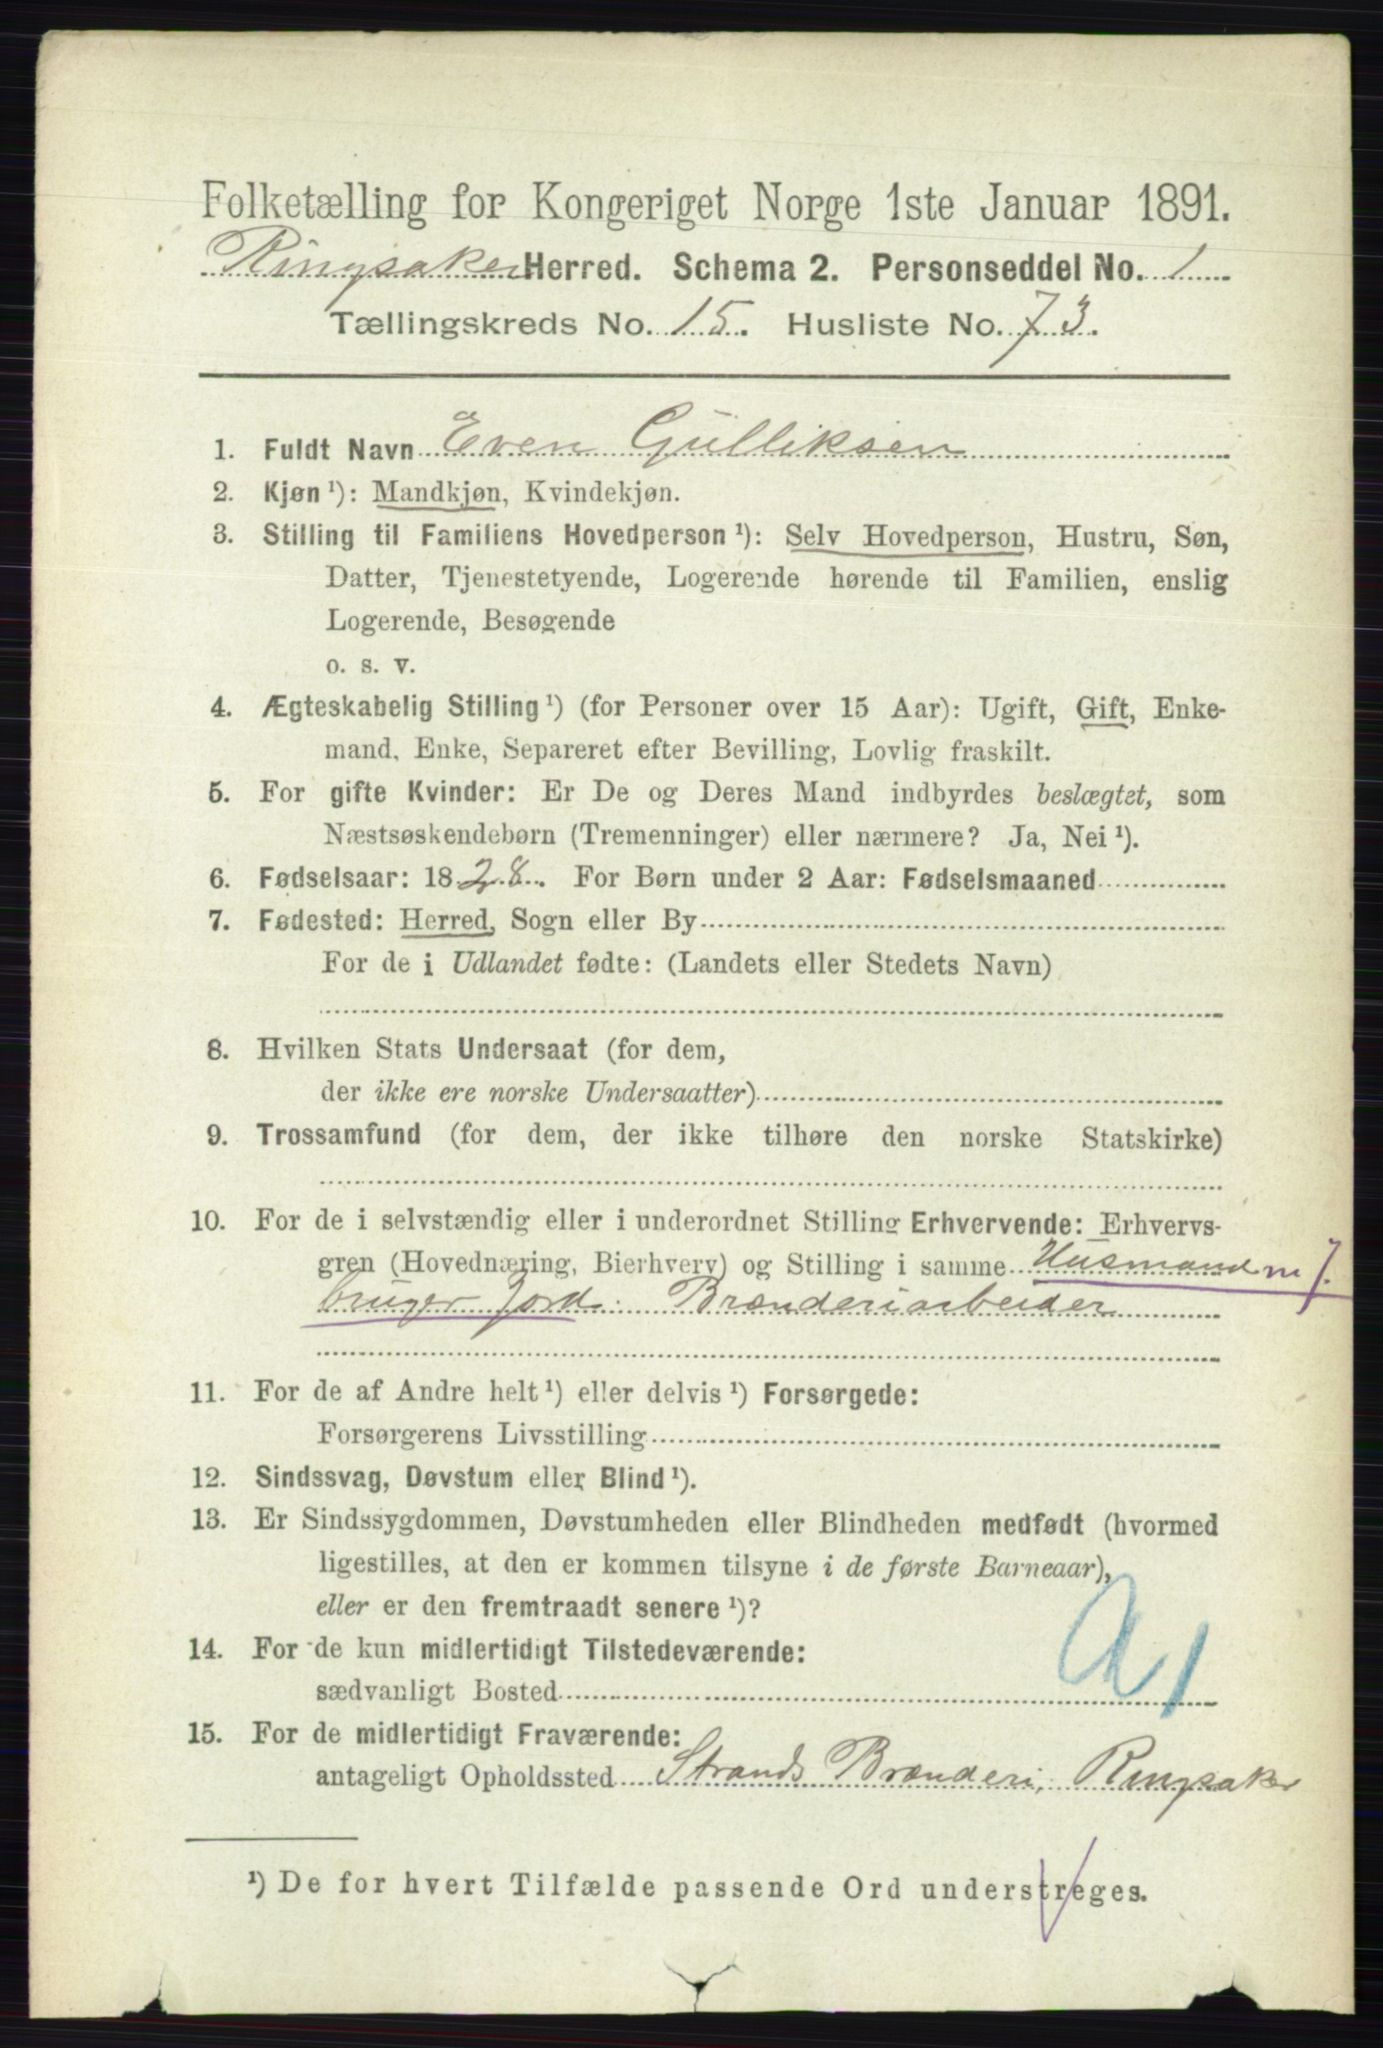 Folketælling for Kongeriget Norge 1ste Januar 1891.
Ringsaker Herred. Schema 2. Personseddel No. 1
Tællingskreds No. 15. Husliste No. 73.
1. Fuldt Navn Even Gulliksen
2. Kjøn ¹): Mandkjøn, Kvindekjøn.
3. Stilling til Familiens Hovedperson ¹): Selv Hovedperson, Hustru, Søn,
Datter, Tjenestetyende, Logerende hørende til Familien, enslig
Logerende, Besøgende
o. s. v.
4. Ægteskabelig Stilling ¹) (for Personer over 15 Aar): Ugift, Gift, Enke-
mand, Enke, Separeret efter Bevilling, Lovlig fraskilt.
5. For gifte Kvinder: Er De og Deres Mand indbyrdes beslægtet, som
Næstsøskendebørn (Tremenninger) eller nærmere? Ja, Nei ¹).
6. Fødselsaar: 1828. For Børn under 2 Aar: Fødselsmaaned
7. Fødested: Herred, Sogn eller By
For de i Udlandet fødte: (Landets eller Stedets Navn)
8. Hvilken Stats Undersaat (for dem,
der ikke ere norske Undersaatter)
9. Trossamfund (for dem, der ikke tilhøre den norske Statskirke)
10. For de i selvstændig eller i underordnet Stilling Erhvervende: Erhvervs-
gren (Hovednæring, Bierhverv) og Stilling i samme Husmand m j.
bruger Jord. Brænderiarbeider
11. For de af Andre helt ¹) eller delvis ¹) Forsørgede:
Forsørgerens Livsstilling
12. Sindssvag, Døvstum eller Blind ¹).
13. Er Sindssygdommen, Døvstumheden eller Blindheden medfødt (hvormed
ligestilles, at den er kommen tilsyne i de første Barneaar),
eller er den fremtraadt senere ¹)?
14. For de kun midlertidigt Tilstedeværende:
sædvanligt Bosted
15. For de midlertidigt Fraværende:
antageligt Opholdssted Strands Brænderi, Ringsaker
¹) De for hvert Tilfælde passende Ord understreges.